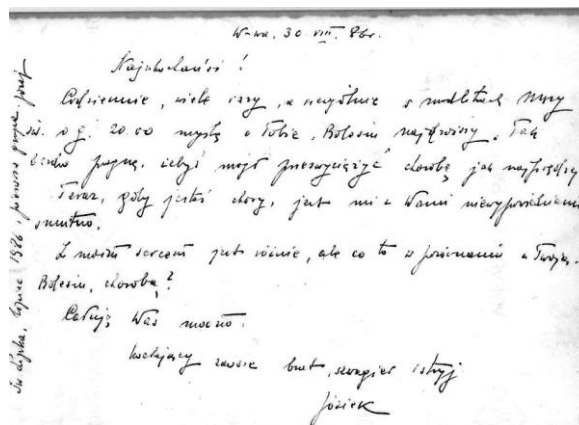 W-wa, 30. VIII. 86r.
Najukochańsi!
Codziennie, wiele razy, a szczególnie w modlitwach Mszy
św. o g. 20.00 myślę o Tobie, Bolesiu najdroższy. Tak
bardzo pragnę, żebyś mógł przezwyciężyć chorobę jak najprędzej
Teraz, gdy jesteś chory, jest mi z Wami niewypowiedzianie
smutno.
Z moim sercem jest różnie, ale co to w porównaniu z Twoją,
Bolesiu, chorobą?
Całuję Was mocno.
kochający zawsze brat, szwagier i stryj
Józiek
lipiec 1986, pierwsza